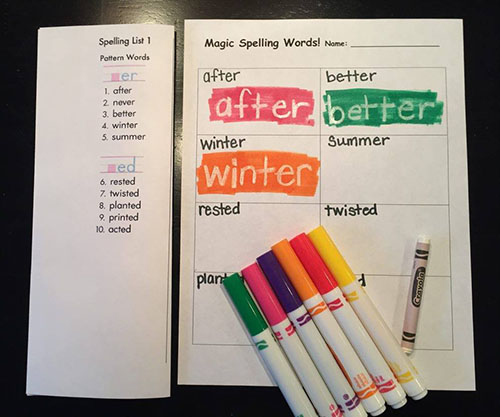 Spelling List 1
Pattern Words
er
1. after
2. never
3. better
4. winter
5. summer
ed
6. rested
7. twisted
8. planted
9. printed
10. acted
Magic Spelling Words! Name:
after better
after better
winter summer
winter
rested twisted
Crayola